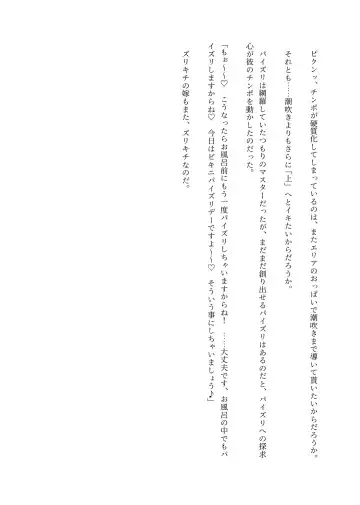 ビクンッ、チンポが硬質化してしまっているのは、またエリアのおっぱいで潮吹きまで導いて貰いたいからだろうか。
それとも……潮吹きよりもさらに「上」へとイキたいからだろうか。
パイズリは網羅していたつもりのマスターだったが、まだまだ創り出せるパイズリはあるのだと、パイズリへの探求
心が彼のチンポを動かしたのだった。
「もぉ～～♡　こうなったらお風呂前にもう一度パイズリしちゃいますからね！　……大丈夫です、お風呂の中でもパ
イズリしますからね♡　今日はビキニパイズリデーですよ～～♡　そういう事にしちゃいましょう♪」
ズリキチの嫁もまた、ズリキチなのだ。